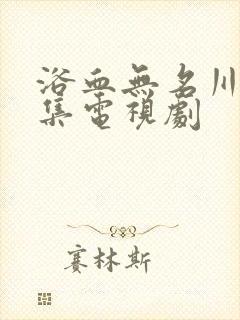 浴血無名川
集電視劇
賽林斯